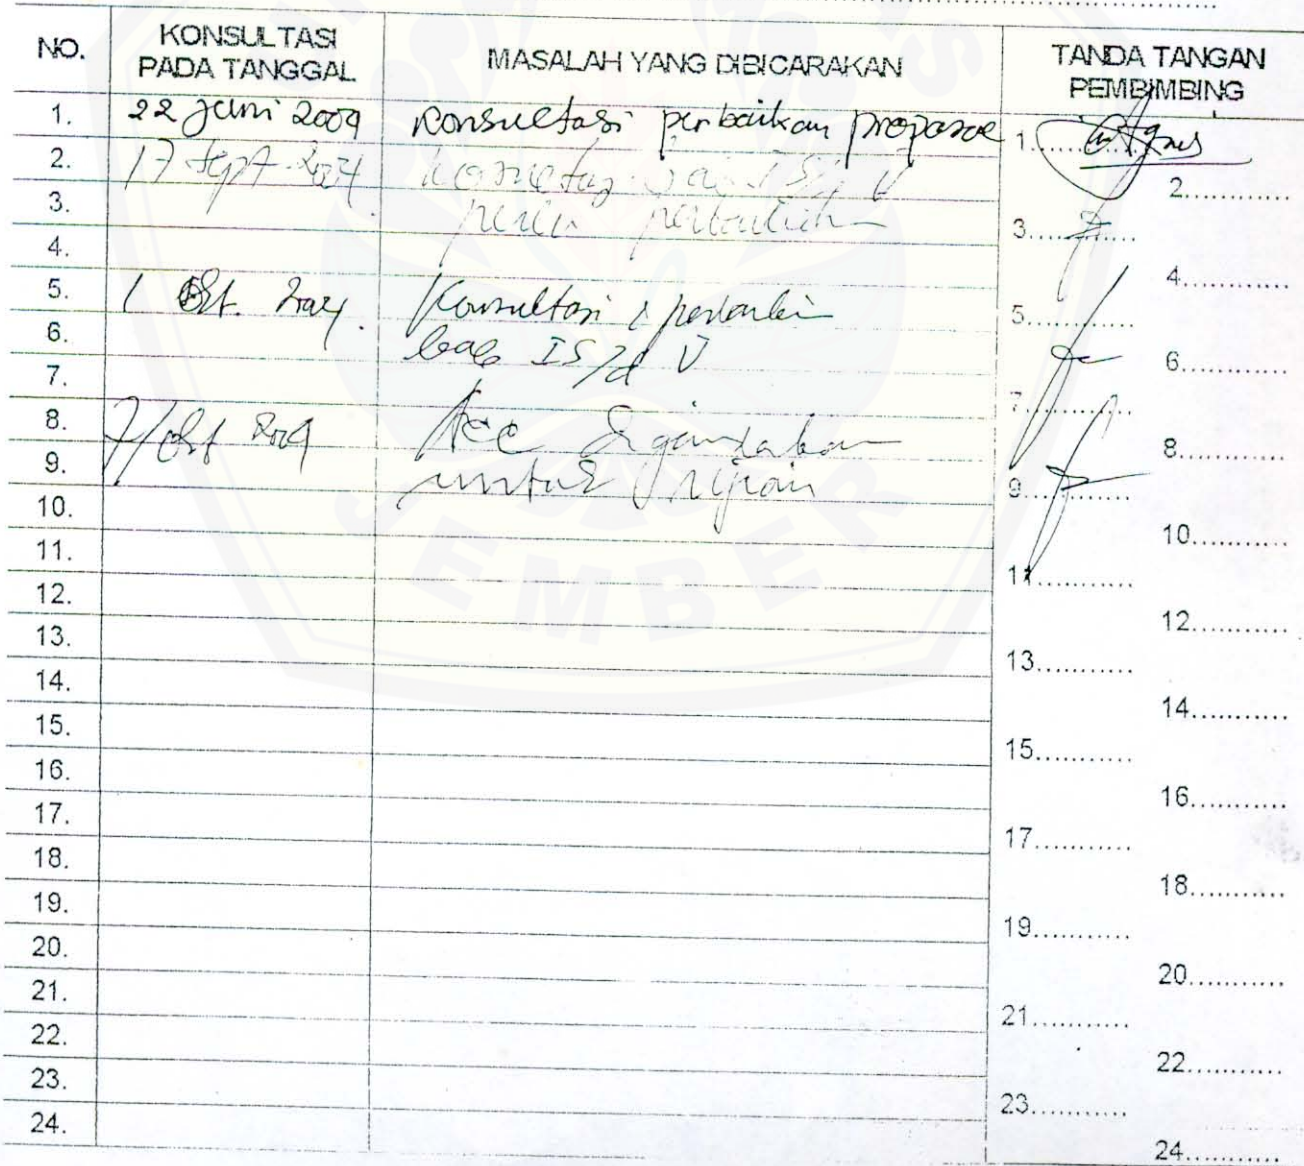 NO. KONSULTASI PADA TANGGAL MASALAH YANG DIBICARAKAN TANDA TANGAN PEMBIMBING
1. 22 Juni 2009 Konsultasi perbaikan proposal 1...........
2. 17 Sept 2...........
3. perlu 3...........
4. 4...........
5. 1 Okt. Konsultasi perbaikan 5...........
6. bab I S/d V 6...........
7. 7...........
8. 7/Okt 2009 Acc digandakan 8...........
9. untuk ujian 9...........
10. 10...........
11. 11...........
12. 12...........
13. 13...........
14. 14...........
15. 15...........
16. 16...........
17. 17...........
18. 18...........
19. 19...........
20. 20...........
21. 21...........
22. 22...........
23. 23...........
24. 24...........
JEMBER